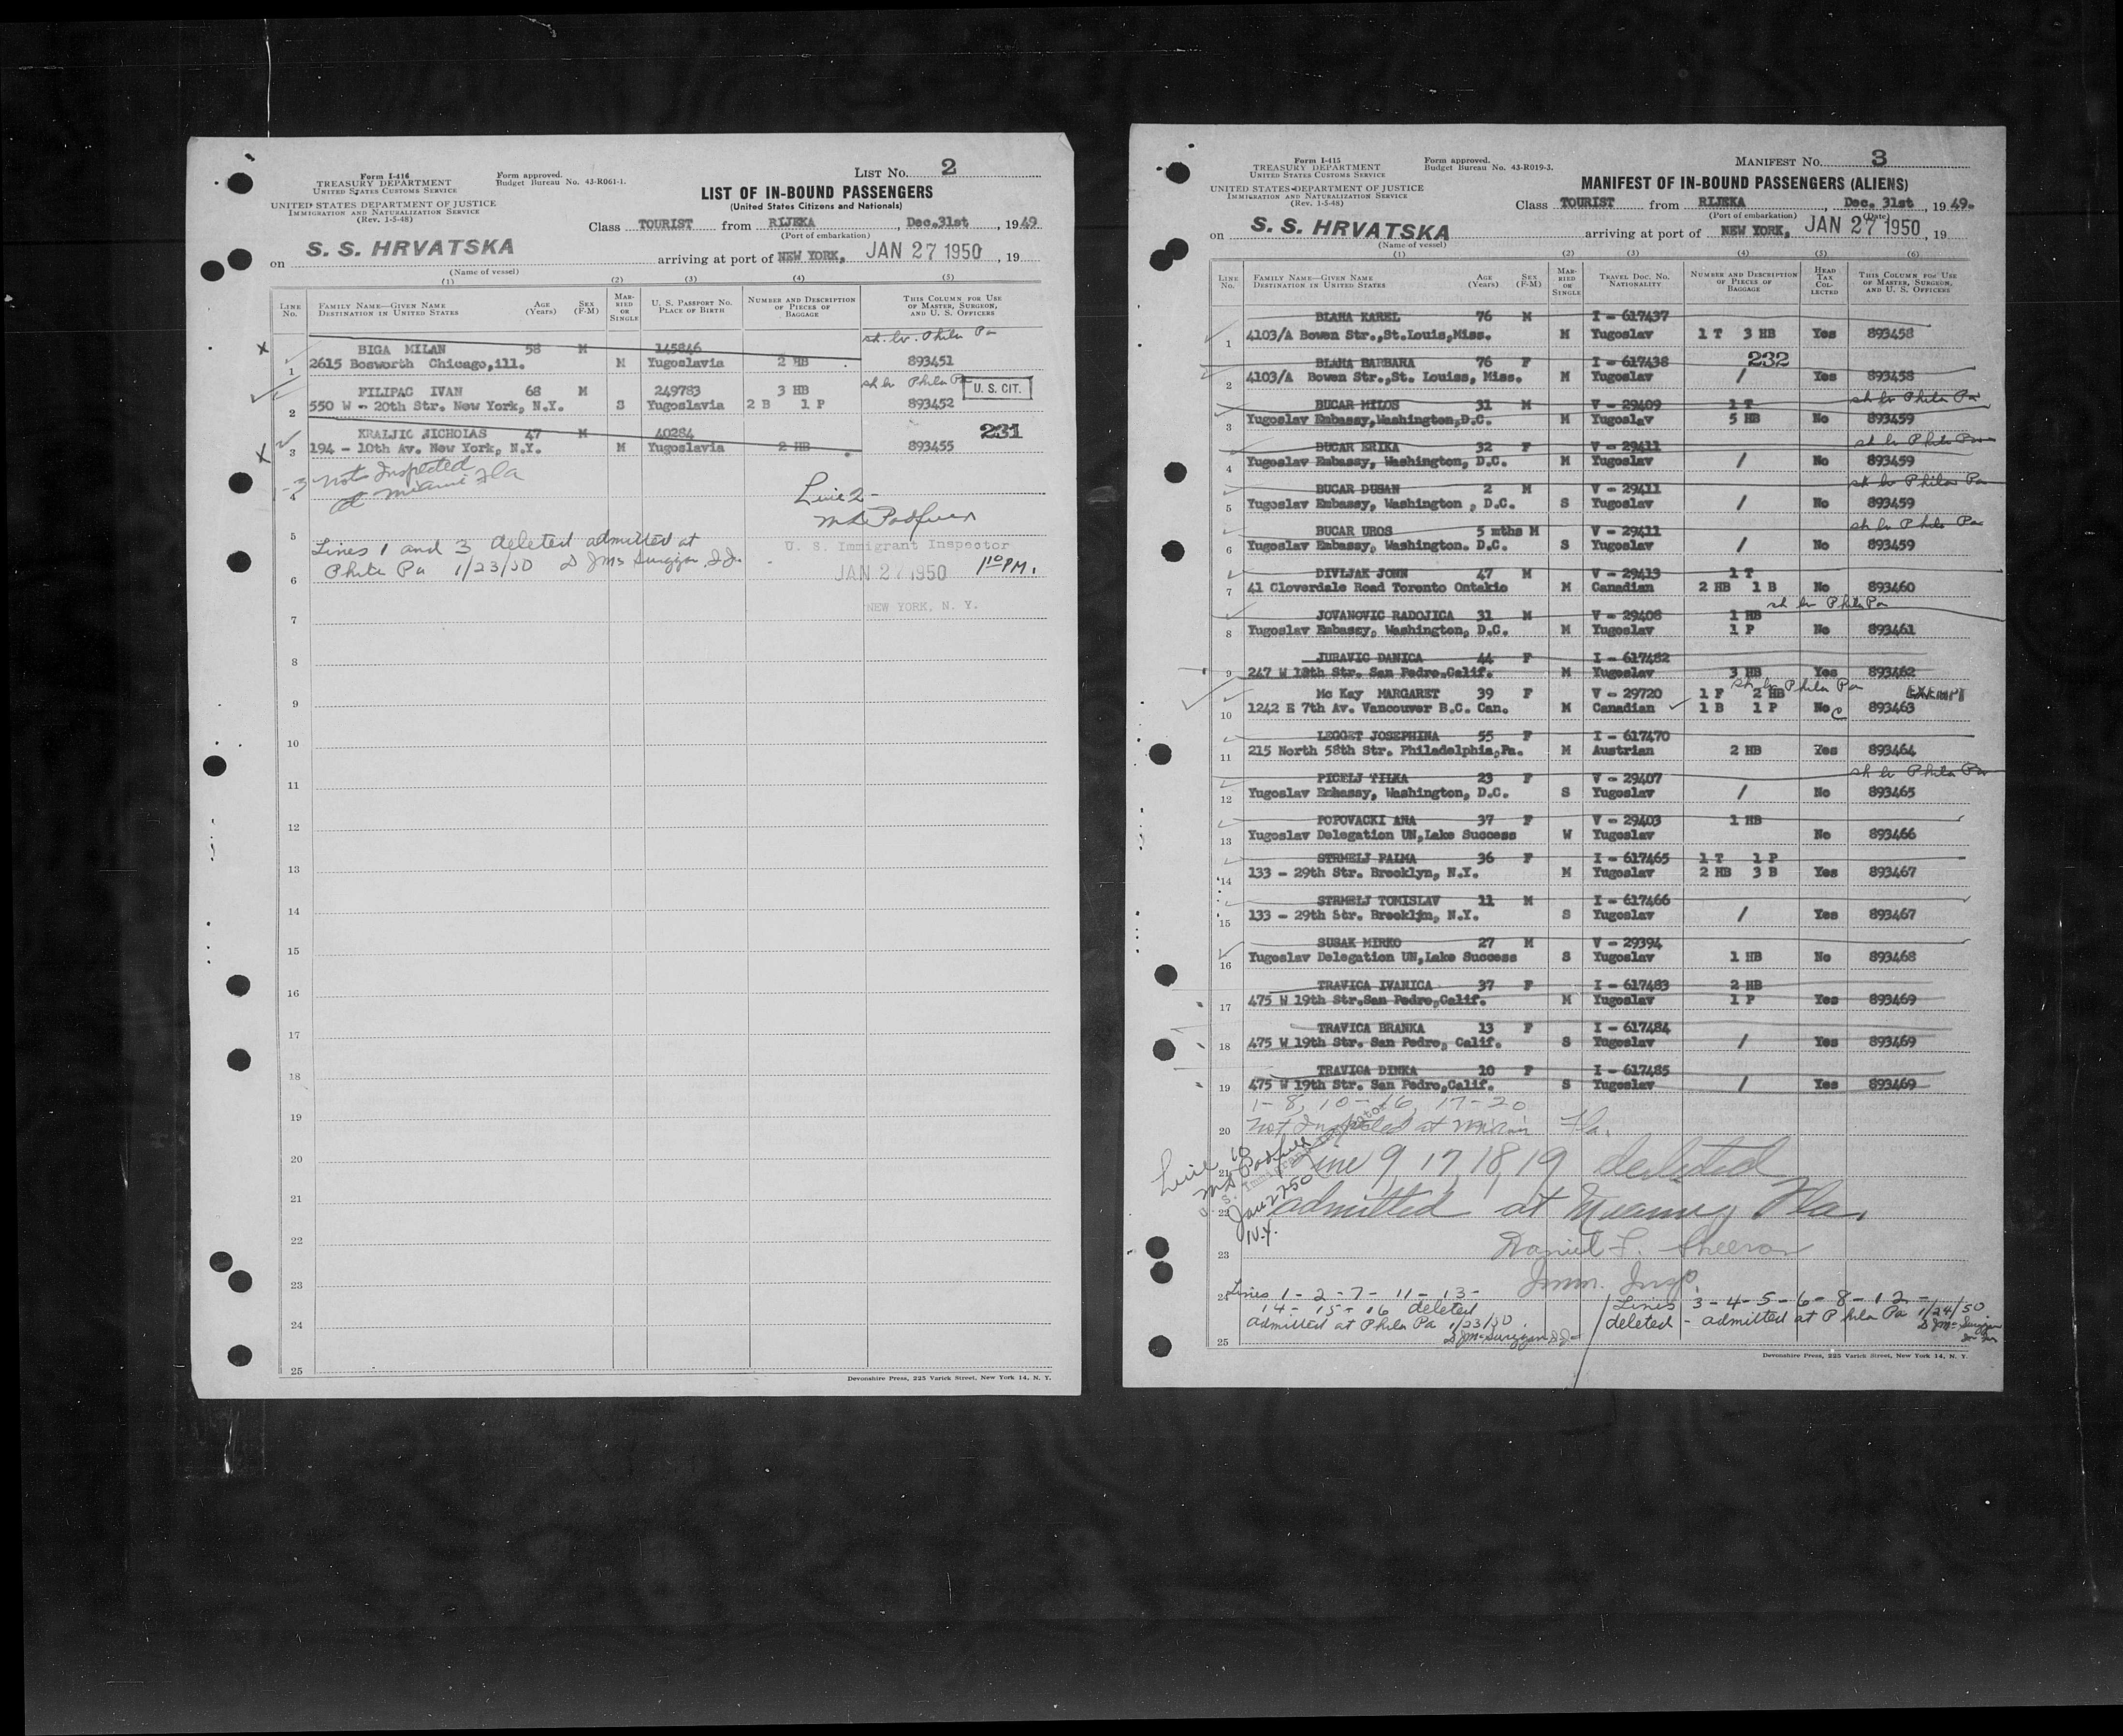 Form I-416
TREASURY DEPARTMENT
UNITED STATES CUSTOMS SERVICE
UNITED STATES DEPARTMENT OF JUSTICE
IMMIGRATION AND NATURALIZATION SERVICE
(Rev. 1-5-48)
Form approved.
Budget Bureau No. 43-R061-1.
LIST NO. 2
LIST OF IN-BOUND PASSENGERS
(United States Citizens and Nationals)
Class TOURIST from RIJEKA, Dec.31st, 1949
(Port of embarkation)
on S. S. HRVATSKA arriving at port of NEW YORK, JAN 27 1950, 19
(Name of vessel)
(1) (2) (3) (4) (5)
LINE NO. FAMILY NAME—GIVEN NAME DESTINATION IN UNITED STATES AGE (Years) SEX (F-M) MARRIED OR SINGLE U. S. PASSPORT NO. PLACE OF BIRTH NUMBER AND DESCRIPTION OF PIECES OF BAGGAGE THIS COLUMN FOR USE OF MASTER, SURGEON, AND U. S. OFFICERS
sh. lv. Phila Pa
BIGA MILAN 58 M 145846
1 2615 Bosworth Chicago,ill. M Yugoslavia 2 HB 893451
sh lv Phila Pa U. S. CIT.
FILIPAC IVAN 68 M 249783 3 HB
2 550 W - 20th Str. New York, N.Y. S Yugoslavia 2 B 1 P 893452
231
KRALJIC NICHOLAS 47 M 40284
3 194 - 10th Av. New York, N.Y. M Yugoslavia 2 HB 893455
-3 Not Inspected
at Miami Fla
4
Line 2 -
5
Lines 1 and 3 deleted admitted at
Phila Pa 1/23/50
U. S. Immigrant Inspector
JAN 27 1950 1:10 PM.
6
NEW YORK, N. Y.
7
8
9
10
11
12
13
14
15
16
17
18
19
20
21
22
23
24
25
Devonshire Press, 225 Varick Street, New York 14, N. Y.
Form I-415
TREASURY DEPARTMENT
UNITED STATES CUSTOMS SERVICE
UNITED STATES DEPARTMENT OF JUSTICE
IMMIGRATION AND NATURALIZATION SERVICE
(Rev. 1-5-48)
Form approved.
Budget Bureau No. 43-R019-3.
MANIFEST NO. 3
MANIFEST OF IN-BOUND PASSENGERS (ALIENS)
Class TOURIST from RIJEKA, Dec. 31st, 1949.
(Port of embarkation) (Date)
on S. S. HRVATSKA arriving at port of NEW YORK, JAN 27 1950, 19
(Name of vessel)
(1) (2) (3) (4) (5) (6)
LINE NO. FAMILY NAME—GIVEN NAME DESTINATION IN UNITED STATES AGE (Years) SEX (F-M) MARRIED OR SINGLE TRAVEL DOC. NO. NATIONALITY NUMBER AND DESCRIPTION OF PIECES OF BAGGAGE HEAD TAX COLLECTED THIS COLUMN FOR USE OF MASTER, SURGEON, AND U. S. OFFICERS
BLAHA KAREL 76 M I - 617437
1 4103/A Bowen Str.,St.Louis,Miss. M Yugoslav 1 T 3 HB Yes 893458
BLAHA BARBARA 76 F I - 617438 232
2 4103/A Bowen Str.,St. Louiss, Miss. M Yugoslav / Yes 893458
BUCAR MILOS 31 M V - 29409 1 T sh lv Phila Pa
3 Yugoslav Embassy,Washington,D.C. M Yugoslav 5 HB No 893459
BUCAR ERIKA 32 F V - 29411 sh lv Phila Pa
4 Yugoslav Embassy, Washington, D.C. M Yugoslav / No 893459
BUCAR DUSAN 2 M V - 29411 sh lv Phila Pa
5 Yugoslav Embassy, Washington , D.C. S Yugoslav / No 893459
BUCAR UROS 5 mths M V - 29411 sh lv Phila Pa
6 Yugoslav Embassy, Washington. D.C. S Yugoslav / No 893459
DIVLJAK JOHN 47 M V - 29413 1 T
7 41 Cloverdale Road Toronto Ontakio M Canadian 2 HB 1 B No 893460
JOVANOVIC RADOJICA 31 M V - 29408 1 HB sh lv Phila Pa
8 Yugoslav Embassy, Washington, D.C. M Yugoslav 1 P No 893461
JURAVIC DANICA 44 F I - 617482
9 247 W 18th Str. San Pedro.Calif. M Yugoslav 3 HB Yes 893462
sh lv Phila Pa
Mc Kay MARGARET 39 F V - 29720 1 F 2 HB EXEMPT
10 1242 E 7th Av. Vancouver B.C. Can. M Canadian 1 B 1 P No C 893463
LEGGET JOSEPHINA 55 F I - 617470
11 215 North 58th Str. Philadelphia,Pa. M Austrian 2 HB Yes 893464
PICELJ TILKA 23 F V - 29407 sh lv Phila Pa
12 Yugoslav Embassy, Washington, D.C. S Yugoslav / No 893465
POPOVACKI ANA 37 F V - 29403 1 HB
13 Yugoslav Delegation UN,Lake Success W Yugoslav No 893466
STRMELJ PALMA 36 F I - 617465 1 T 1 P
14 133 - 29th Str. Brooklyn, N.Y. M Yugoslav 2 HB 3 B Yes 893467
STRMELJ TOMISLAV 11 M I - 617466
15 133 - 29th Str. Brookljn, N.Y. S Yugoslav / Yes 893467
SUSAK MIRKO 27 M V - 29394
16 Yugoslav Delegation UN,Lake Success S Yugoslav 1 HB No 893468
TRAVICA IVANICA 37 F I - 617483 2 HB
17 475 W 19th Str.San Pedro,Calif. M Yugoslav 1 P Yes 893469
TRAVICA BRANKA 13 F I - 617484
18 475 W 19th Str. San Pedro, Calif. S Yugoslav / Yes 893469
TRAVICA DINKA 10 F I - 617485
19 475 W 19th Str. San Pedro,Calif. S Yugoslav / Yes 893469
1-8, 10-16, 17-20
20 Not Inspected at Miami Fla.
Line 10
Jan 27 50
N.Y.
21 Line 9, 17, 18, 19 deleted
22 admitted at Miami, Fla.
23 Daniel F. Sheeran
Imm. Insp.
24 Lines 1-2-7-11-13-
14-15-16 deleted
admitted at Phila Pa 1/23/50.
Lines 3-4-5-6-8-12-
deleted - admitted at Phila Pa 1/24/50
25
Devonshire Press, 225 Varick Street, New York 14, N. Y.